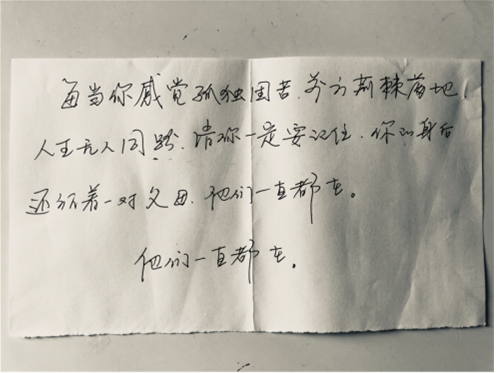 每当你感觉孤独困苦、前方荆棘落地，
人生无人同路，请你一定要记住，你的身后
还站着一对父母，他们一直都在。
他们一直都在。